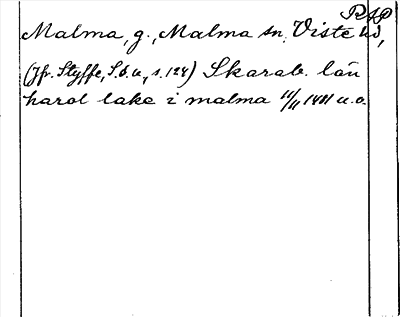 RAP
Malma, g., Malma sn. Viste hd,
(Jfr. Styffe, S. u. u, s. 124) Skarab. län
harol lake i malma 11/11 1481 u.o.